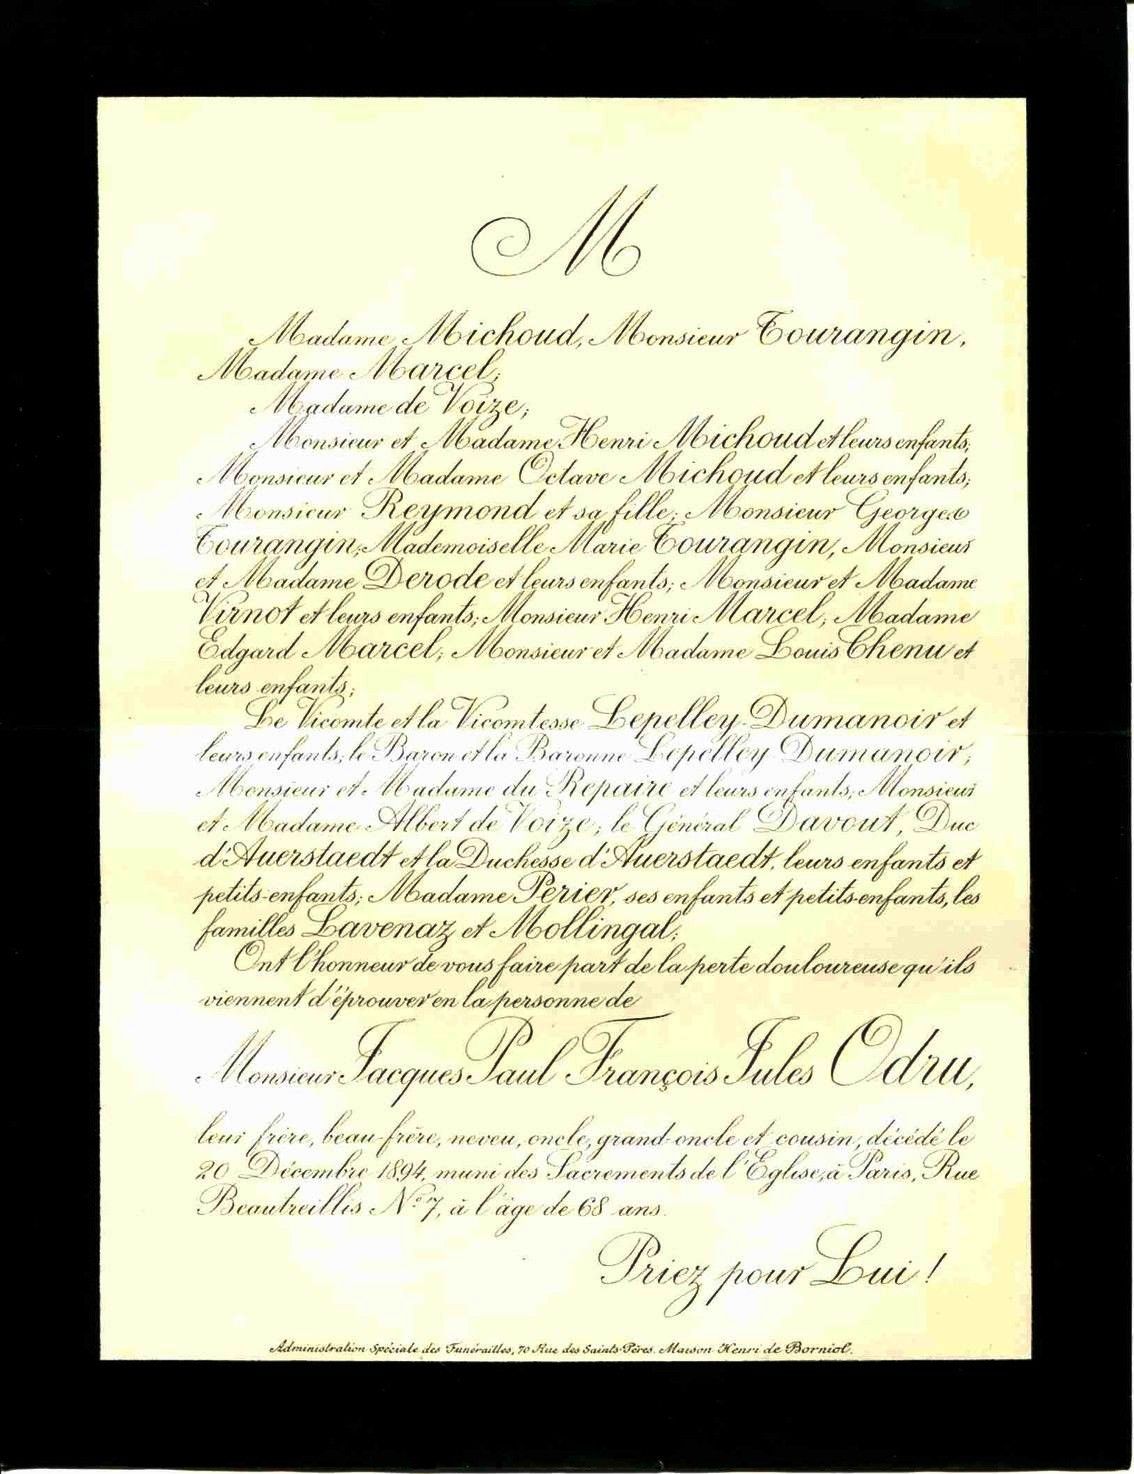 M
Madame Michoud, Monsieur Tourangin,
Madame Marcel;
Madame de Voize;
Monsieur et Madame Henri Michoud et leurs enfants;
Monsieur et Madame Octave Michoud et leurs enfants;
Monsieur Reymond et sa fille; Monsieur Georges
Tourangin; Mademoiselle Marie Tourangin, Monsieur
et Madame Derode et leurs enfants; Monsieur et Madame
Virnot et leurs enfants; Monsieur Henri Marcel; Madame
Edgard Marcel; Monsieur et Madame Louis Chenu et
leurs enfants;
Le Vicomte et la Vicomtesse Lepelley-Dumanoir et
leurs enfants; le Baron et la Baronne Lepelley Dumanoir;
Monsieur et Madame du Repaire et leurs enfants; Monsieur
et Madame Albert de Voize; le Général Davout, Duc
d'Auerstaedt et la Duchesse d'Auerstaedt, leurs enfants et
petits-enfants; Madame Perier, ses enfants et petits-enfants, les
familles Lavenaz et Mollingal;
Ont l'honneur de vous faire part de la perte douloureuse qu'ils
viennent d'éprouver en la personne de
Monsieur Jacques Paul François Jules Odru,
leur frère, beau-frère, neveu, oncle, grand-oncle et cousin, décédé le
20 Décembre 1894, muni des Sacrements de l'Eglise, à Paris, Rue
Beautreillis N° 7, à l'âge de 68 ans.
Priez pour Lui !
Administration Spéciale des Funérailles, 70 Rue des Saints-Pères. Maison Henri de Borniol.